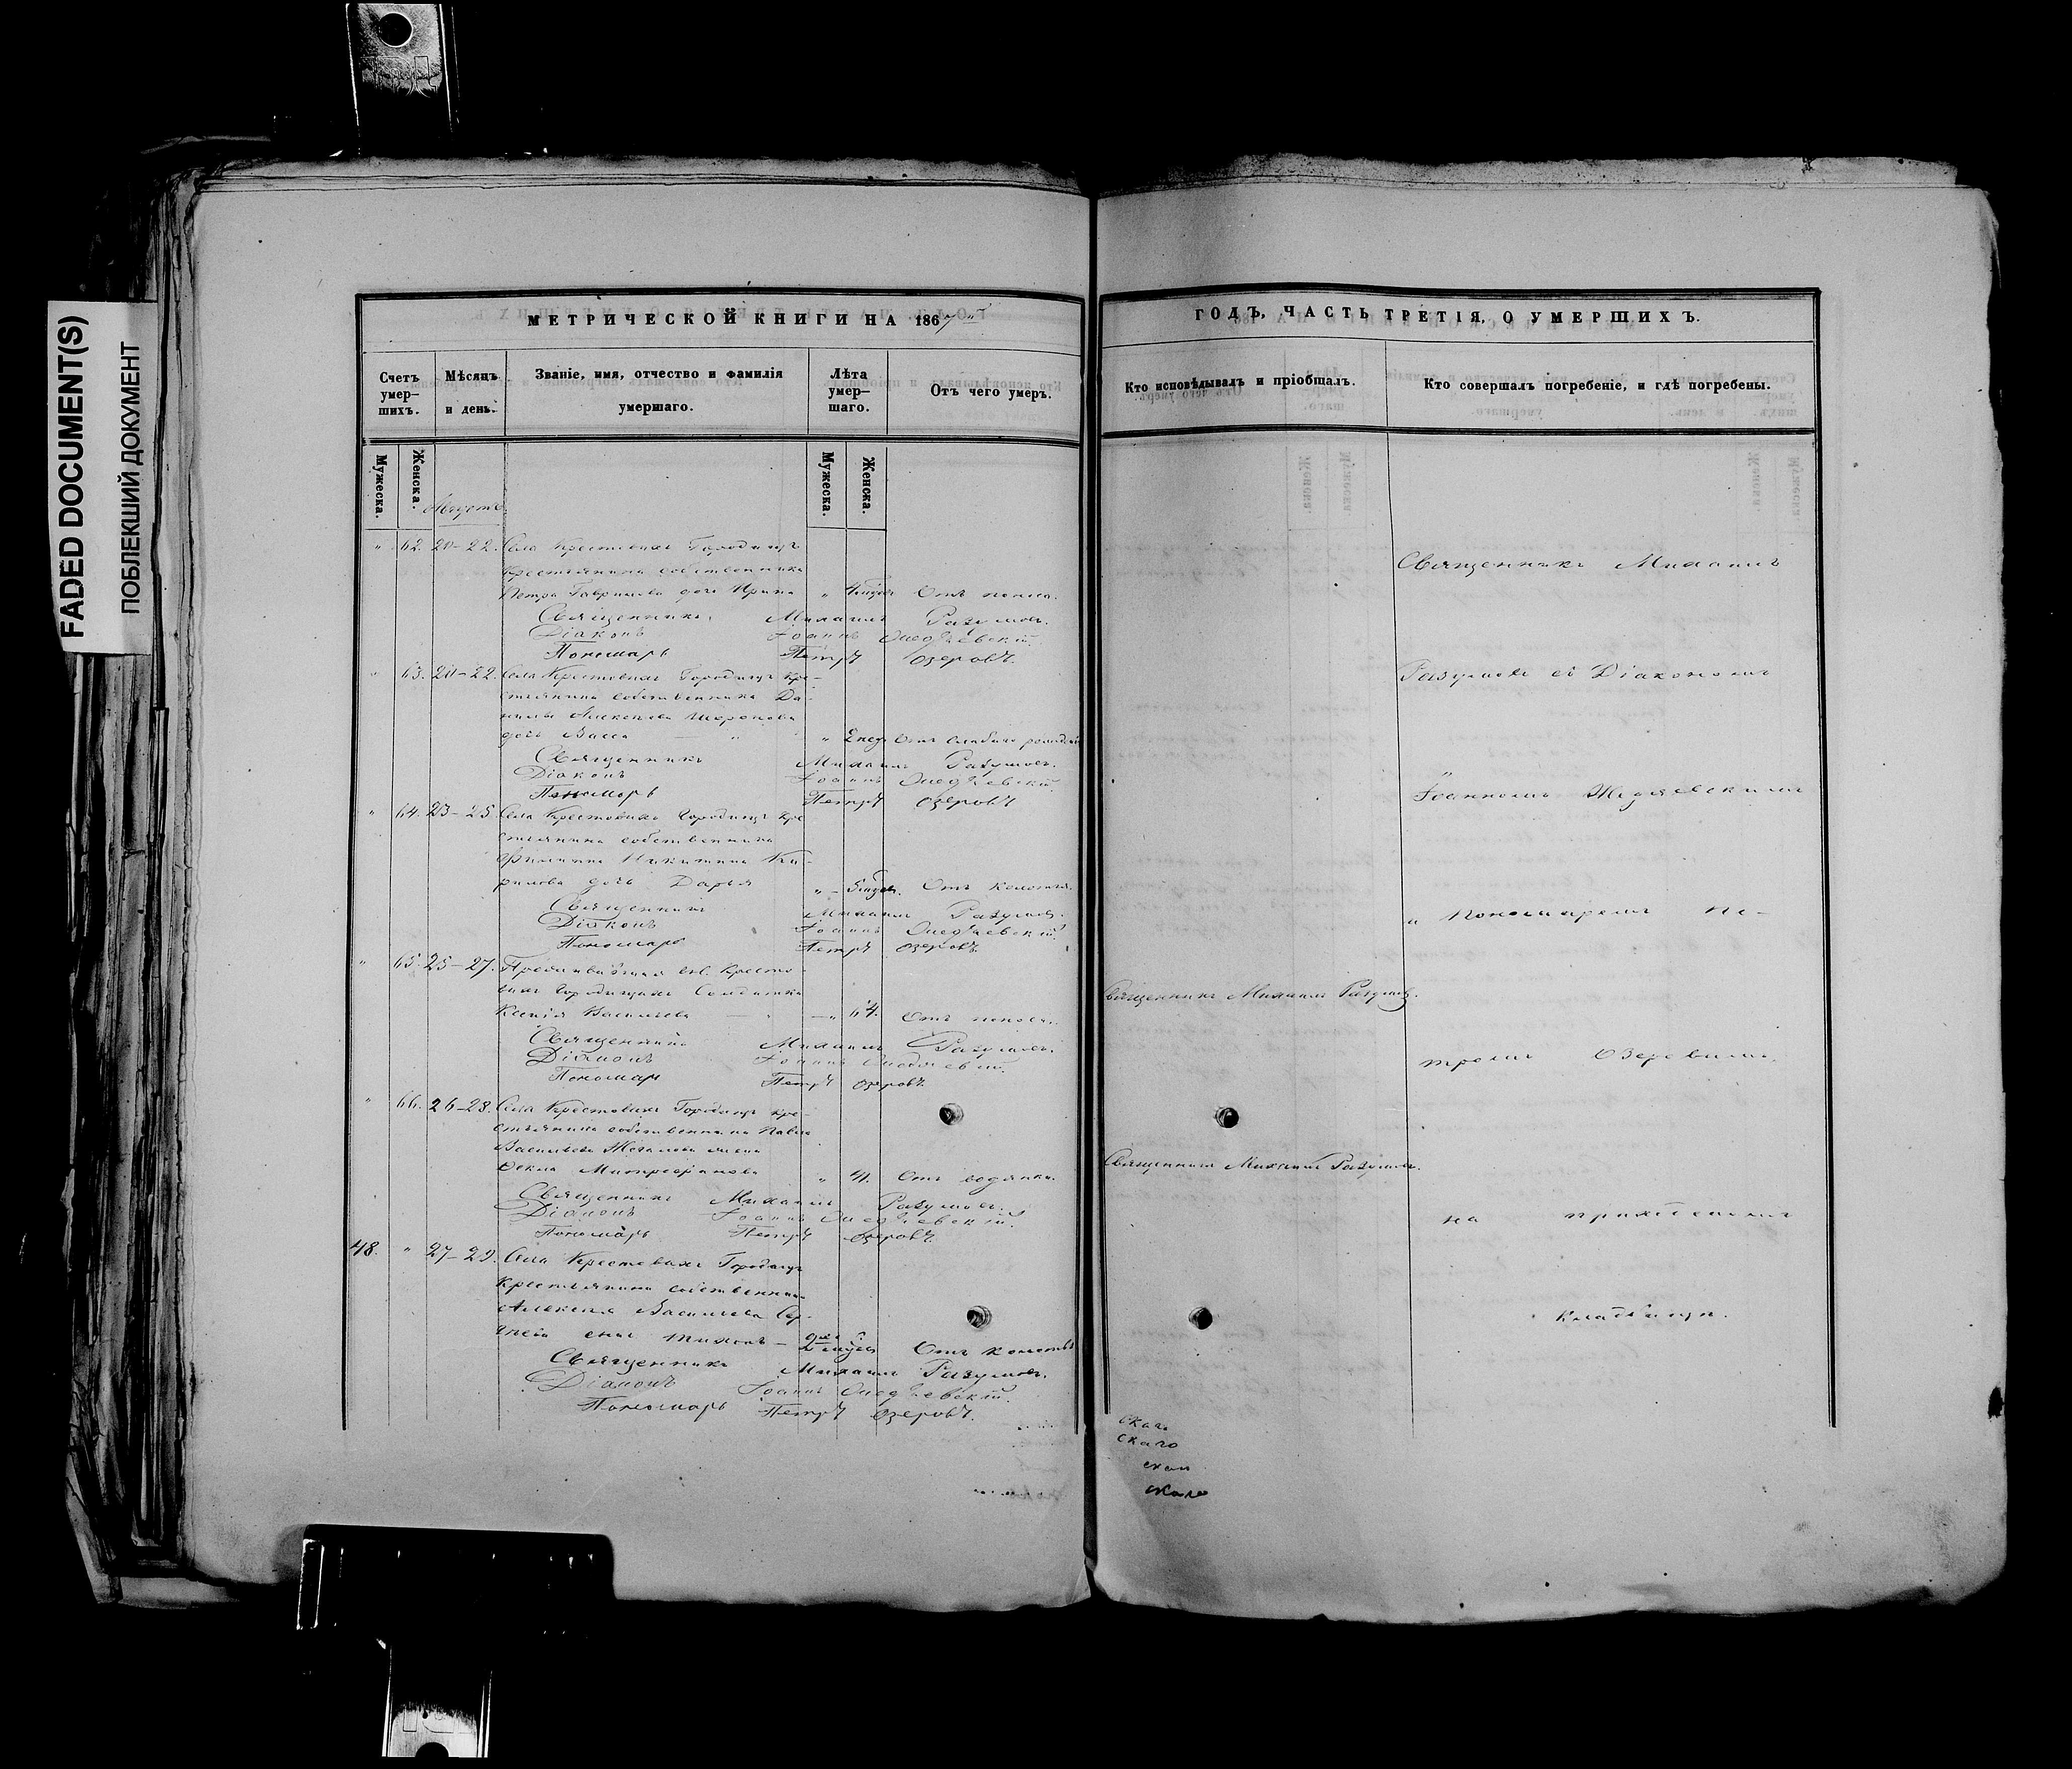 FADED DOCUMENT(S)
ПОБЛЕКШИЙ ДОКУМЕНТ
МЕТРИЧЕСКОЙ КНИГИ НА 1867
Счетъ умер- шихъ.
Мѣсяцъ и день.
Званіе, имя, отчество и фамилія умершаго.
Лѣта умер- шаго.
Отъ чего умеръ.
Мужеска.
Женска.
Мужеска.
Женска.
Августъ
" 62. 20-22. Села Крестовыхъ Городищъ
крестьянина собственника
Петра Гаврилова дочь Ирина " Отъ поноса.
Священникъ Михаилъ Разумовъ.
Діаконъ Іоаннъ
Пономарь Петръ Озеровъ.
" 63. 20-22. Села Крестовыхъ Городищъ кре-
стьянина собственника Да-
нилы Алексѣева
дочь Васса " 2 нед. Отъ слабаго рожденія
Священникъ Михаилъ Разумовъ.
Діаконъ Іоаннъ
Пономарь Петръ Озеровъ
" 64. 23-25. Села Крестовыхъ Городищъ кре
стьянина собственника
Никитина Ки-
рилова дочь Дарья " Отъ
Священникъ Михаилъ Разумовъ.
Діаконъ Іоаннъ
Пономарь Петръ Озеровъ.
" 65. 25-27. Проживающая въ Кресто-
выхъ Городищахъ Солдатка
Ксенія Васильева " 64. Отъ поноса.
Священникъ Михаилъ Разумовъ.
Діаконъ Іоаннъ
Пономарь Петръ Озеровъ.
" 66. 26-28. Села Крестовыхъ Городищъ кре-
стьянина собственника Павла
Васильева жена
Фекла Митрофанова " Отъ водянки.
Священникъ Михаилъ Разумовъ.
Діаконъ Іоаннъ
Пономарь Петръ Озеровъ.
48. " 27-29. Села Крестовыхъ Городищъ
Крестьянина собственника
Алексѣя Васильева Сер-
сынъ Тихонъ Отъ
Священникъ Михаилъ Разумовъ.
Діаконъ Іоаннъ
Пономарь Петръ Озеровъ.
ГОДЪ, ЧАСТЬ ТРЕТІЯ, О УМЕРШИХЪ.
Кто исповѣдывалъ и пріобщалъ.
Кто совершалъ погребеніе, и гдѣ погребены.
Священникъ Михаилъ
Разумовъ съ Діакономъ
Іоанномъ
и Пономаремъ Пе-
Священникъ Михаилъ Разумовъ.
тромъ Озеровымъ,
Священникъ Михаилъ Разумовъ.
на приходскомъ
кладбищѣ.
скаго
скаго
скаго